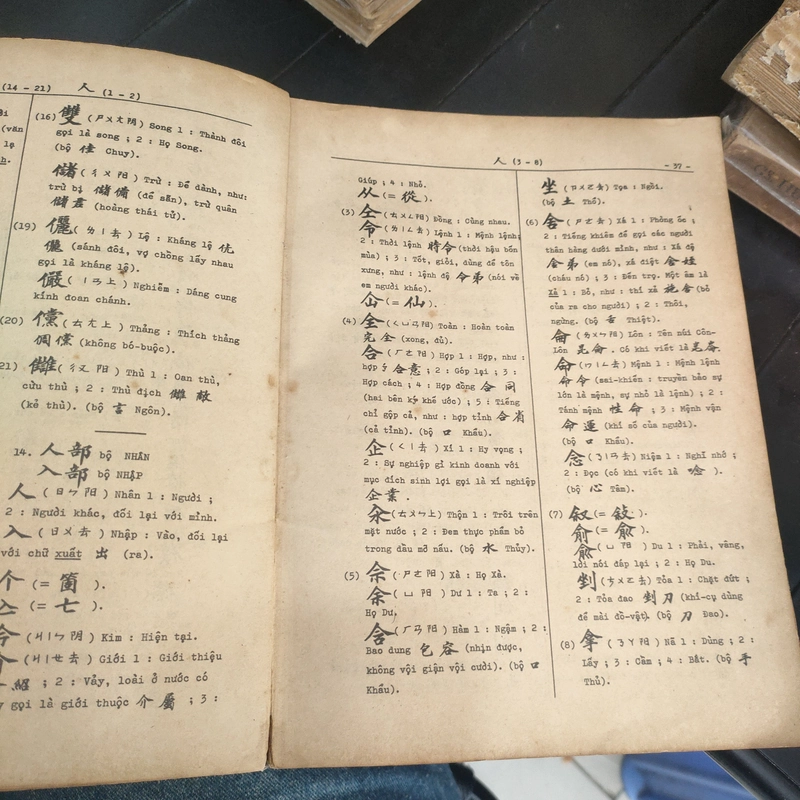 (14 - 21) 人 (1 - 2)
(văn
(16) 雙 (ㄕㄨㄤ阴) Song 1 : Thành đôi
gọi là song ; 2 : Họ Song.
(bộ 隹 Chuy).
儲 (ㄔㄨ阳) Trừ : Để dành, như:
trừ bị 儲備 (để sẵn), trừ quân
儲君 (hoàng thái tử).
(19) 儷 (ㄌㄧ去) Lệ : Kháng lệ 伉
儷 (sánh đôi, vợ chồng lấy nhau
gọi là kháng lệ).
儼 (ㄧㄢ上) Nghiễm : Dáng cung
kính đoan chánh.
(20) 儻 (ㄊㄤ上) Thảng : Thích thảng
倜儻 (không bó-buộc).
21) 讎 (ㄔㄡ阳) Thù 1 : Oan thù,
cừu thù ; 2 : Thù địch 讎敵
(kẻ thù). (bộ 言 Ngôn).
14. 人部 bộ NHÂN
入部 bộ NHẬP
人 (ㄖㄣ阳) Nhân 1 : Người ;
2 : Người khác, đối lại với mình.
入 (ㄖㄨ去) Nhập : Vào, đối lại
với chữ xuất 出 (ra).
个 (= 箇 ).
亼 (= 七 ).
今 (ㄐㄧㄣ阴) Kim : Hiện tại.
介 (ㄐㄧㄝ去) Giới 1 : Giới thiệu
紹 ; 2 : Vảy, loài ở nước có
gọi là giới thuộc 介屬 ; 3 :
人 (3 - 8) - 37 -
Giúp ; 4 : Nhỏ.
从 (= 從 ).
(3) 仝 (ㄊㄨㄥ阳) Đồng : Cùng nhau.
令 (ㄌㄧㄥ去) Lệnh 1 : Mệnh lệnh;
2 : Thời lệnh 時令 (thời hậu bốn
mùa) ; 3 : Tốt, giỏi, dùng để tôn
xưng, như : lệnh đệ 令弟 (nói về
em người khác).
仚 (= 仙 ).
(4) 全 (ㄑㄩㄢ阳) Toàn : Hoàn toàn
完全 (xong, đủ).
合 (ㄏㄜ阳) Hợp 1 : Hợp, như :
hợp ý 合意 ; 2 : Góp lại ; 3 :
Hợp cách ; 4 : Hợp đồng 合同
(hai bên ký khế ước) ; 5 : Tiếng
chỉ gộp cả, như : hợp tỉnh 合省
(cả tỉnh). (bộ 口 Khẩu).
企 (ㄑㄧ去) Xí 1 : Hy vọng ;
2 : Sự nghiệp gì kinh doanh với
mục đích sinh lợi gọi là xí nghiệp
企業.
氽 (ㄊㄨㄣ上) Thộn 1 : Trôi trên
mặt nước ; 2 : Đem thực phẩm bỏ
trong dầu mỡ nấu. (bộ 水 Thủy).
(5) 佘 (ㄕㄜ阳) Xà : Họ Xà.
余 (ㄩ阳) Dư 1 : Ta ; 2 :
Họ Dư.
含 (ㄏㄢ阳) Hàm 1 : Ngậm ; 2 :
Bao dung 包容 (nhịn được,
không vội giận vội cười). (bộ 口
Khẩu).
坐 (ㄗㄨㄛ去) Tọa : Ngồi.
(bộ 土 Thổ).
(6) 舍 (ㄕㄜ去) Xá 1 : Phòng ốc ;
2 : Tiếng khiêm để gọi các người
thân hàng dưới mình, như : Xá đệ
舍弟 (em nó), xá điệt 舍姪
(cháu nó) ; 3 : Đến trọ. Một âm là
Xả 1 : Bỏ, như : thí xả 施舍 (bỏ
của ra cho người) ; 2 : Thôi,
ngừng. (bộ 舌 Thiệt).
侖 (ㄌㄨㄣ阳) Lôn : Tên núi Côn-
lôn 昆侖. Có khi viết là 崑崙.
命 (ㄇㄧㄥ去) Mệnh 1 : Mệnh lệnh
命令 (sai-khiến : truyền bảo sự
lớn là mệnh, sự nhỏ là lệnh) ; 2 :
Tánh mệnh 性命 ; 3 : Mệnh vận
命運 (khí số của người).
(bộ 口 Khẩu).
念 (ㄋㄧㄢ去) Niệm 1 : Nghĩ nhớ ;
2 : Đọc (có khi viết là 唸 ).
(bộ 心 Tâm).
(7) 叙 (= 敍 ).
俞 (= 兪 ).
兪 (ㄩ阳) Du 1 : Phải, vâng,
lời nói đáp lại ; 2 : Họ Du.
剉 (ㄘㄨㄛ去) Tỏa 1 : Chặt đứt ;
2 : Tỏa đao 剉刀 (khí-cụ dùng
để mài đồ-vật). (bộ 刀 Đao).
(8) 拿 (ㄋㄚ阳) Nã 1 : Dùng ; 2 :
Lấy ; 3 : Cầm ; 4 : Bắt. (bộ 手
Thủ).